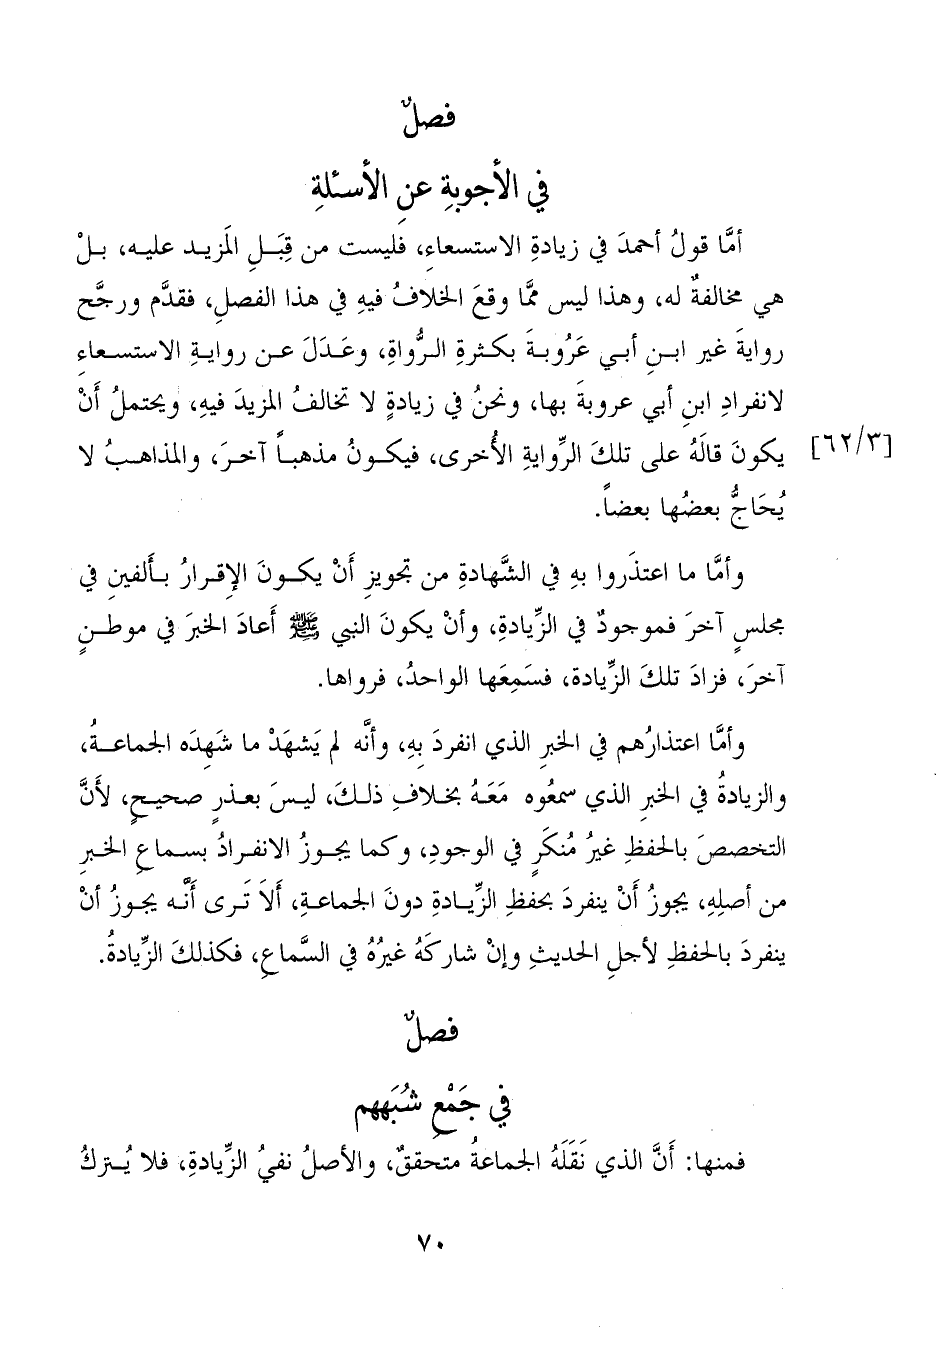 فصلٌ
في الأجوبةِ عنِ الأسئلةِ
أمَّا قولُ أحمدَ في زيادةِ الاستسعاءِ، فليست من قِبَلِ المَزيد عليه، بلْ
هي مخالفةٌ له، وهذا ليس ممَّا وقعَ الخلافُ فيهِ في هذا الفصلِ، فقدَّم ورجَّح
روايةَ غير ابنِ أبي عَرُوبةَ بكثرةِ الرُّواةِ، وعَدَلَ عن روايةِ الاستسعاءِ
لانفرادِ ابنِ أبي عروبةَ بها، ونحنُ في زيادةٍ لا تخالفُ المزيدَ فيهِ، ويحتملُ أَنْ
يكونَ قالَهُ على تلكَ الرِّوايةِ الأُخرى، فيكونُ مذهباً آخرَ، والمذاهبُ لا [٦٢/٣]
يُحَاجُّ بعضُها بعضاً.
وأمَّا ما اعتذَروا بهِ في الشَّهادةِ من تجويزِ أَنْ يكونَ الإقرارُ بألفينِ في
مجلسٍ آخرَ فموجودٌ في الزِّيادةِ، وأنْ يكونَ النبي ﷺ أَعادَ الخبرَ في موطنٍ
آخرَ، فزادَ تلكَ الزِّيادة، فسَمِعَها الواحدُ، فرواها.
وأمَّا اعتذارُهم في الخبرِ الذي انفردَ بِهِ، وأنَّه لم يَشهَدْ ما شَهِدَه الجماعةُ،
والزيادةُ في الخبرِ الذي سمعُوه مَعَهُ بخلافِ ذلكَ، ليسَ بعذرٍ صحيحٍ، لأنَّ
التخصصَ بالحفظِ غيرُ مُنكَرٍ في الوجودِ، وكما يجوزُ الانفرادُ بسماعِ الخبرِ
من أصلِهِ، يجوزُ أَنْ ينفردَ بحفظِ الزِّيادةِ دونَ الجماعةِ، أَلاَ تَرى أَنَّه يجوزُ أنْ
ينفردَ بالحفظِ لأجلِ الحديثِ وإنْ شاركَهُ غيرُهُ في السَّماعِ، فكذلكَ الزِّيادةُ.
فصلٌ
في جَمْعِ شُبَههم
فمنها: أَنَّ الذي نَقَلَهُ الجماعةُ متحققٌ، والأصلُ نفيُ الزِّيادةِ، فلا يُتركُ
٧٠